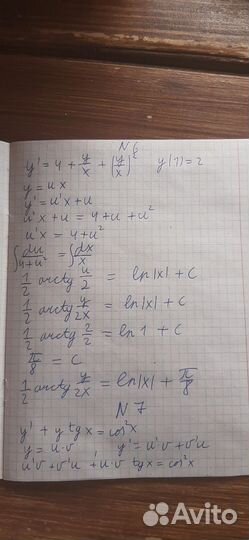 N 6
y' = 4 + y/x + (y/x)² y(1) = 2
y = ux
y' = u'x + u
u'x + u = 4 + u + u²
u'x = 4 + u²
∫ du/(4+u²) = ∫ dx/x
1/2 arctg u/2 = ln|x| + C
1/2 arctg y/2x = ln|x| + C
1/2 arctg 2/2 = ln 1 + C
π/8 = C
1/2 arctg y/2x = ln|x| + π/8
N 7
y' + y tg x = cos²x
y = u·v y' = u'v + v'u
u'v + v'u + u·v tg x = cos²x
Avito